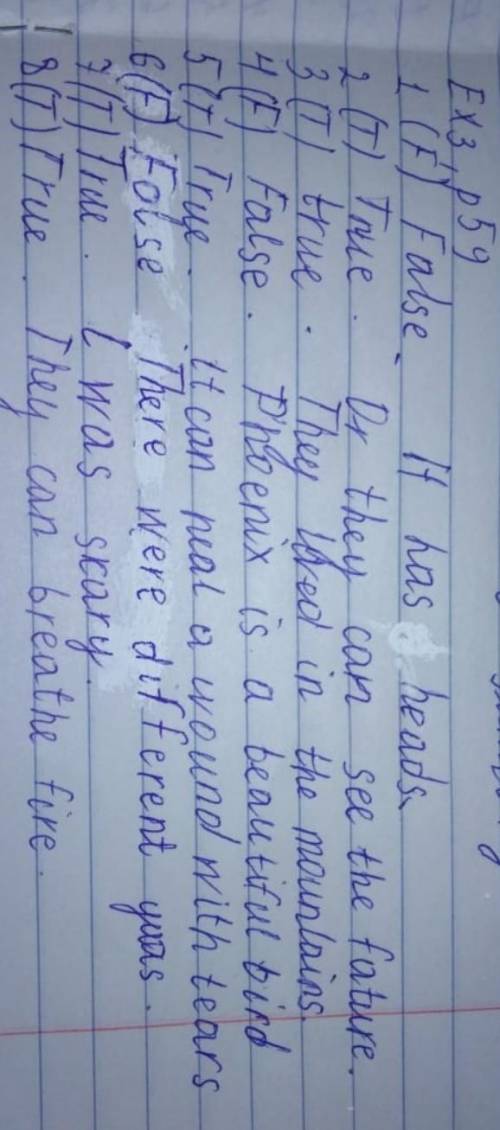 Ex3, p59
1 (F) False. It has heads.
2 (T) True. Or they can see the fature.
3 (T) true. They lived in the mountains.
4 (F) False. Phoenix is a beautiful bird
5 (T) True. it can heal a wound with tears
6 (F) False There were different yeas.
7 (T) True. I was skary.
8 (T) True. They can breathe fire.